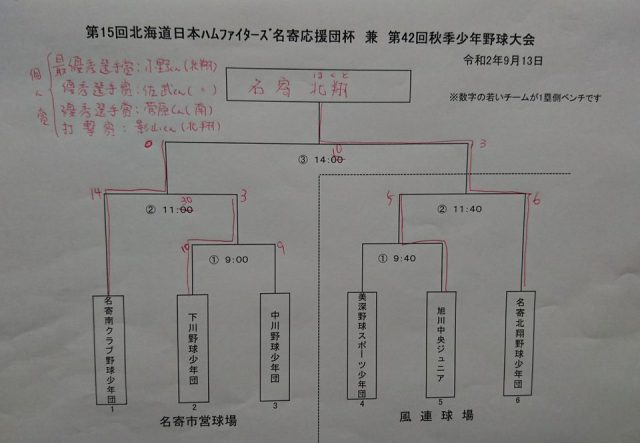 第15回北海道日本ハムファイターズ名寄応援団杯 兼 第42回秋季少年野球大会
令和2年9月13日
個人賞
最優秀選手賞:小野くん(北翔)
優秀選手賞:佐武くん(〃)
優秀選手賞:菅原くん(南)
打撃賞:影山くん(北翔)
ほくと
名寄 北翔
※数字の若いチームが1塁側ベンチです
0
③ 14:00
10
3
14
② 11:00
30
3
4
② 11:40
6
10
① 9:00
9
① 9:40
5
名寄南クラブ野球少年団
1
下川野球少年団
2
中川野球少年団
3
美深野球スポーツ少年団
4
旭川中央ジュニア
5
名寄北翔野球少年団
6
名寄市営球場
風連球場